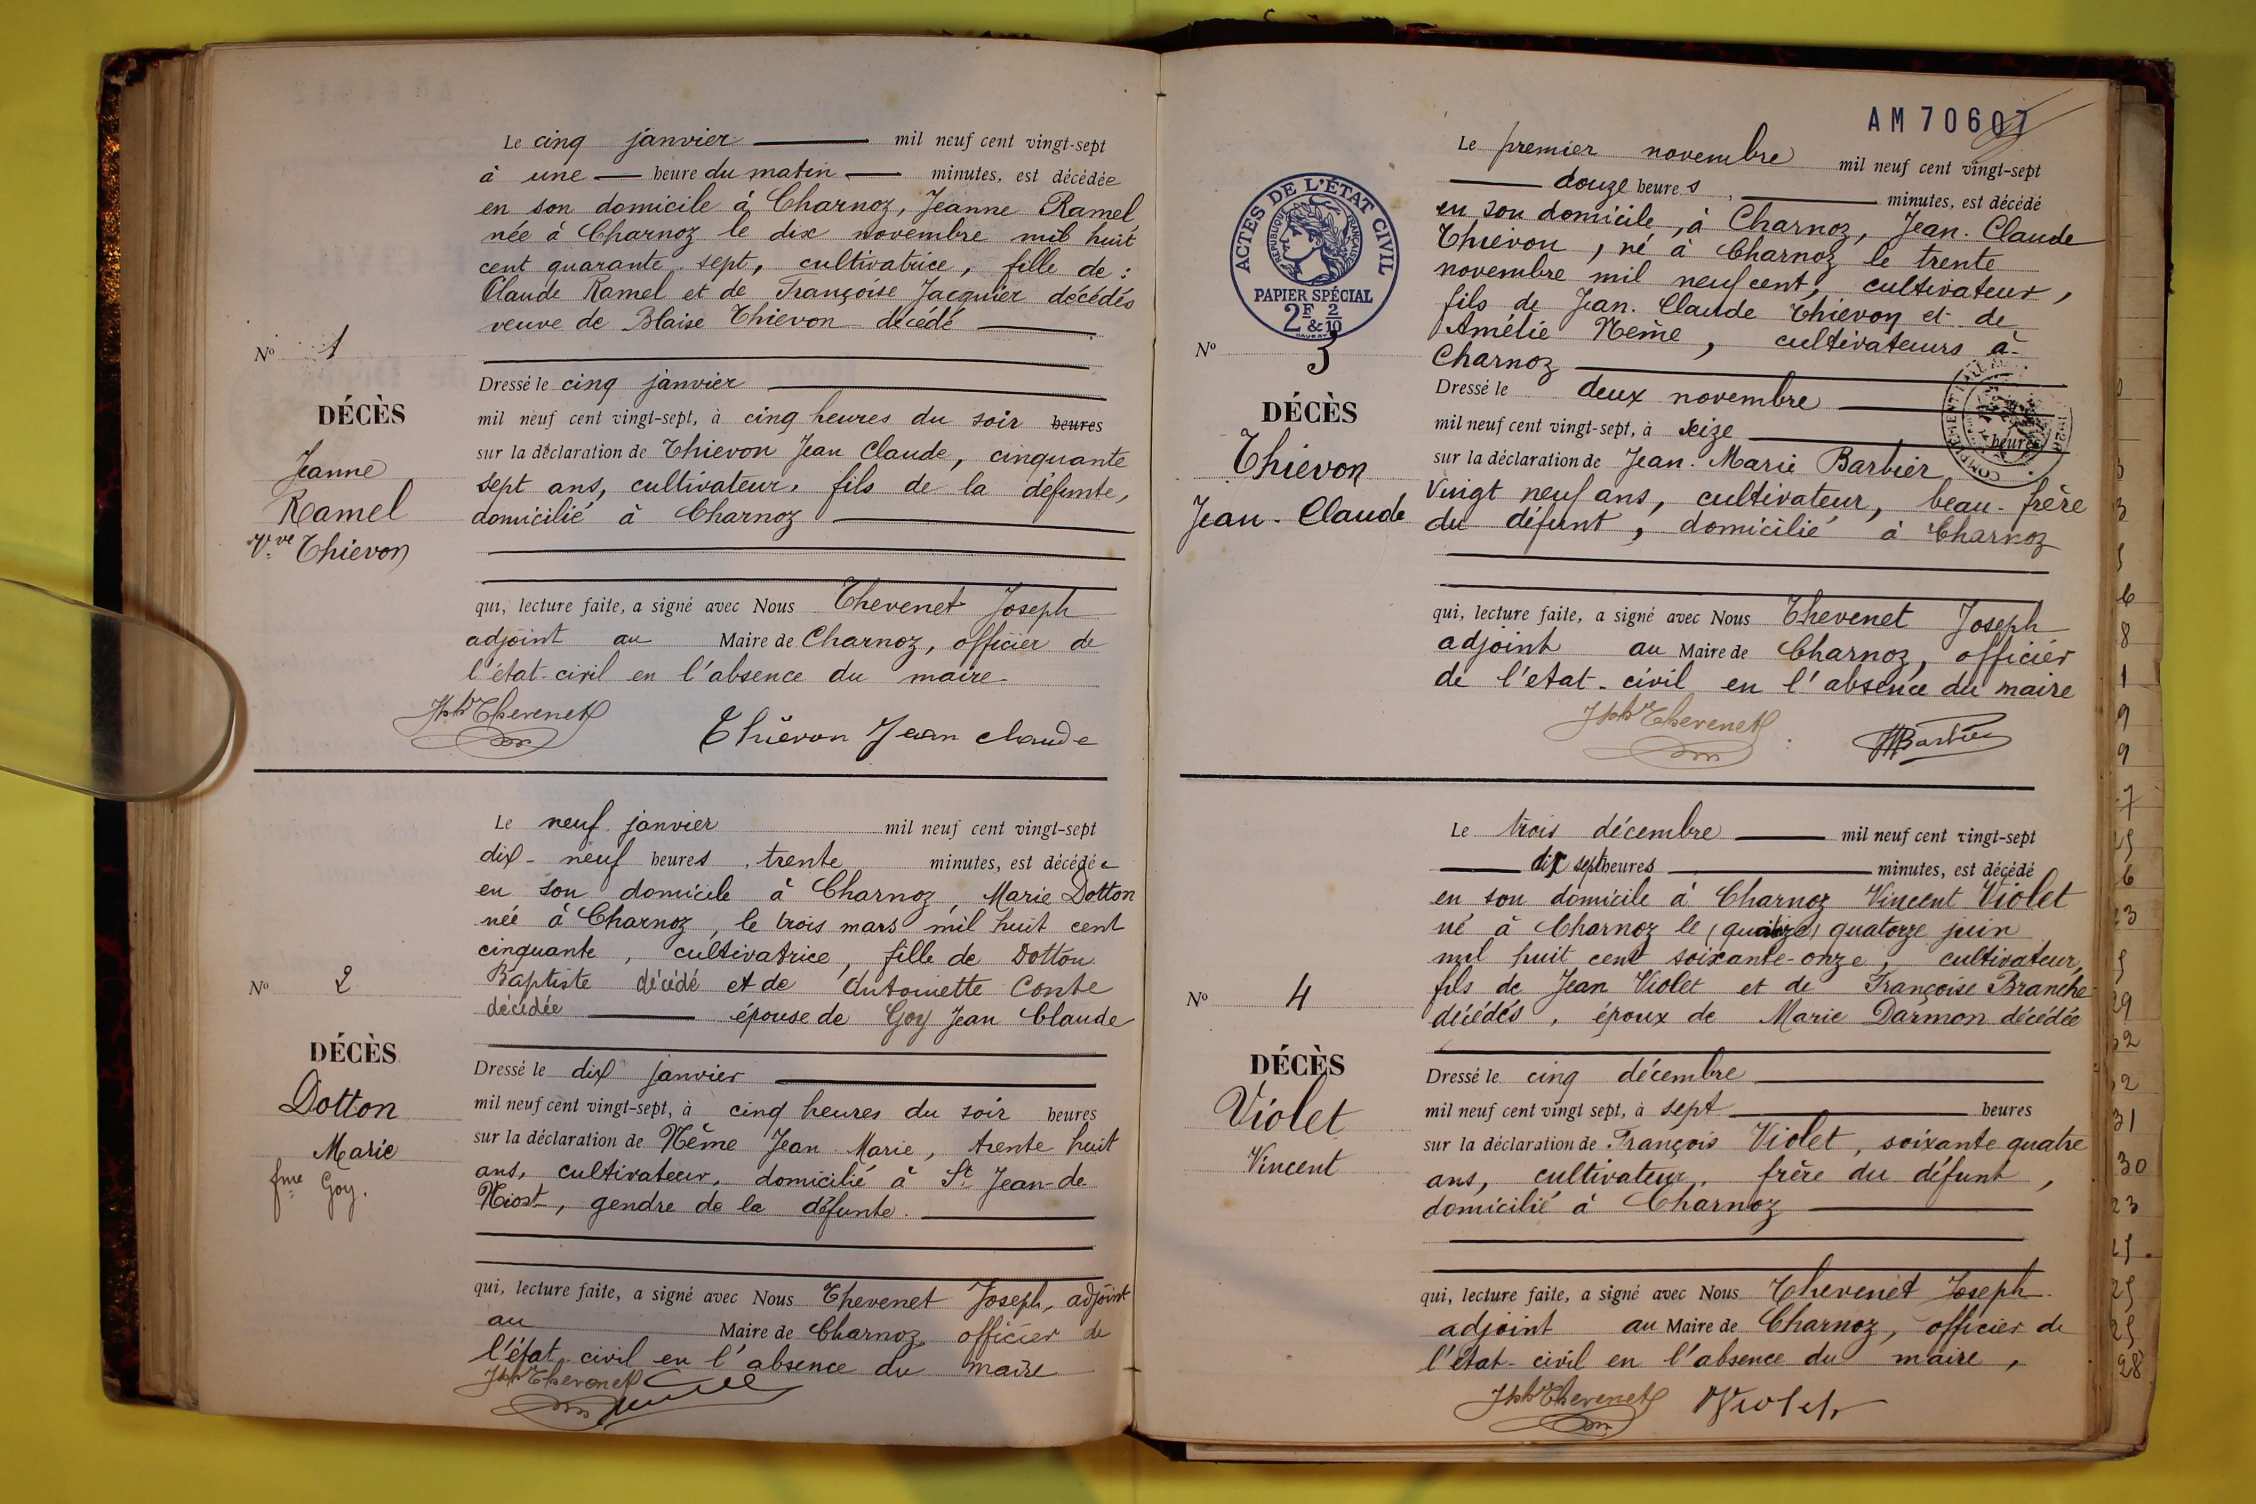 Le cinq janvier mil neuf cent vingt-sept
à une heure du matin minutes, est décédée
en son domicile à Charnoz, Jeanne Ramel
née à Charnoz le dix novembre mil huit
cent quarante sept, cultivatrice, fille de :
Claude Ramel et de Françoise Jacquier décédés
veuve de Blaise Thievon décédé
N° 1
DÉCÈS
Jeanne
Ramel
Vve Thievon
Dressé le cinq janvier
mil neuf cent vingt-sept, à cinq heures du soir heures
sur la déclaration de Thievon Jean Claude, cinquante
sept ans, cultivateur, fils de la defunte,
domicilié à Charnoz
qui, lecture faite, a signé avec Nous Thevenet Joseph
adjoint au Maire de Charnoz, officier de
l'état-civil en l'absence du maire
Jph Thevenet Thiévon Jean claude
Le neuf janvier mil neuf cent vingt-sept
dix-neuf heures, trente minutes, est décédée
en son domicile à Charnoz, Marie Dotton
née à Charnoz, le trois mars mil huit cent
cinquante, cultivatrice, fille de Dotton
Baptiste décédé et de Antoinette Conte
décédée épouse de Goy Jean Claude
N° 2
DÉCÈS
Dotton
Marie
fme Goy.
Dressé le dix janvier
mil neuf cent vingt-sept, à cinq heures du soir heures
sur la déclaration de Nême Jean Marie, trente huit
ans, cultivateur, domicilié à St Jean-de
Niost, gendre de la défunte.
qui, lecture faite, a signé avec Nous Thevenet Joseph, adjoint
au Maire de Charnoz officier de
l'état-civil en l'absence du maire
Jph Thevenet
AM 70607
ACTES DE L'ÉTAT CIVIL
RÉPUBLIQUE FRANÇAISE
PAPIER SPÉCIAL
2F & 2/10
Le premier novembre mil neuf cent vingt-sept
douze heures, minutes, est décédé
en son domicile, à Charnoz, Jean-Claude
Thiévon, né à Charnoz le trente
novembre mil neuf cent, cultivateur,
fils de Jean-Claude Thiévon et de
Amélie Nême, cultivateurs à
Charnoz
N° 3
DÉCÈS
Thiévon
Jean-Claude
Dressé le deux novembre
mil neuf cent vingt-sept, à seize heures
sur la déclaration de Jean-Marie Barbier
vingt neuf ans, cultivateur, beau-frère
du défunt, domicilié à Charnoz
qui, lecture faite, a signé avec Nous Thevenet Joseph
adjoint au Maire de Charnoz, officier
de l'état-civil en l'absence du maire
Jph Thevenet JMBarbier
Le trois décembre mil neuf cent vingt-sept
dix sept heures minutes, est décédé
en son domicile à Charnoz Vincent Violet
né à Charnoz le (quinze) quatorze juin
mil huit cent soixante-onze, cultivateur,
fils de Jean Violet et de Françoise Branche
décédés, époux de Marie Darmon décédée
N° 4
DÉCÈS
Violet
Vincent
Dressé le cinq décembre
mil neuf cent vingt sept, à sept heures
sur la déclaration de François Violet, soixante quatre
ans, cultivateur, frère du défunt,
domicilié à Charnoz
qui, lecture faite, a signé avec Nous Thevenet Joseph
adjoint au Maire de Charnoz, officier de
l'état-civil en l'absence du maire,
Jph Thevenet Violet